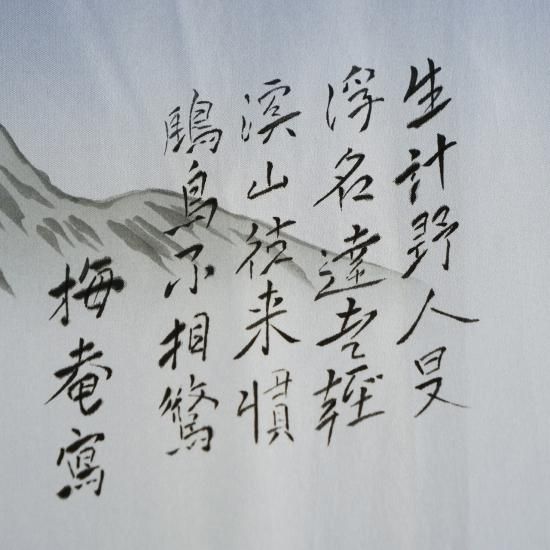 生計野人足
浮名達老輕
溪山往来慣
鷗鳥不相驚
梅菴寫